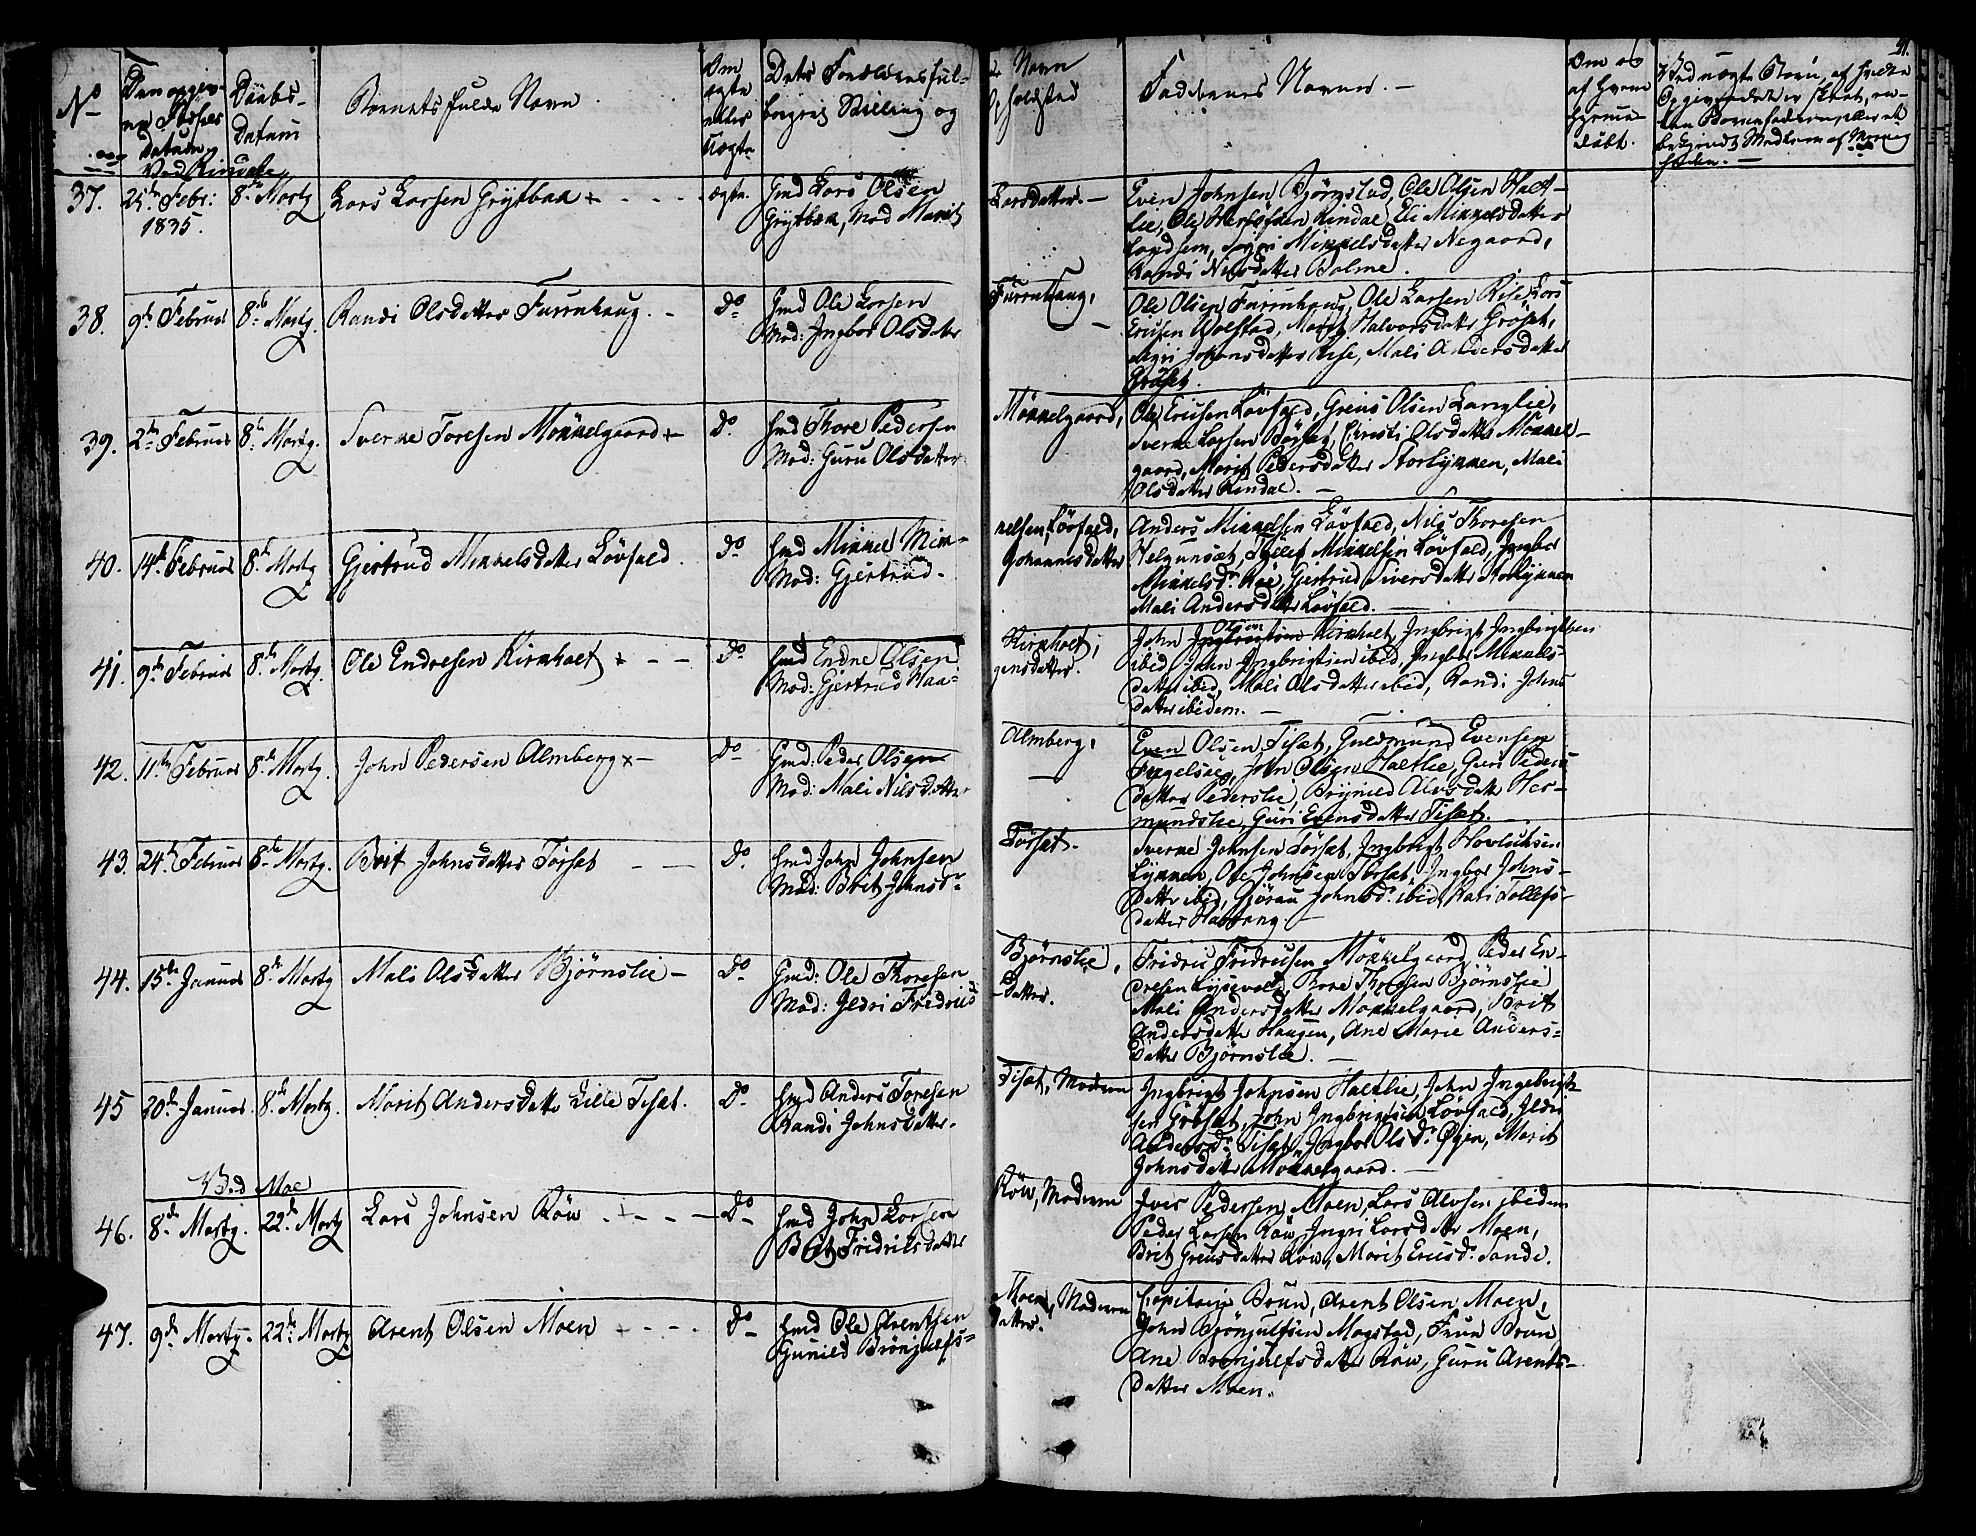 No
Den opgiv-
ne Fødsels
datum
Daabs-
datum
Barnets fulde Navn
Om
ægte
eller
uægte
Dets Forældres ful-
borgerl. Stilling og
Navn
Opholdsted
Faddernes Navne. —
Om og
af hvem
hjemme-
døbt.
Ved Rindale
37. 25de Febr: 8de Martz Lars Larsen Grytbak ægte. Gmd Lars Olsen
1835. Grytbak, Mod Marit
Larsdatter. —
Even Johnsen Bjørgstad, Ole Olsen Halt-
lie, Ole Rindal, Eli Mikkelsdatter
Mikkelsdatter Negaard,
Randi Nilsdatter Bolme.
38. 9de Februar 8de Martz. Randi Olsdatter Furruhaug. Do Gmd Ole Larsen
Mod: Ingebor Olsdatter
Furruhaug,
Ole Olsen Furruhaug, Ole Larsen Rise, Lars
Ericksen Wolstad, Marit Halvorsdatter Gröset,
Johansdatter Rise, Mali Andersdatter
Gröset.
39. 2de Februar 8de Martz. Sverke Toresen Mokkelgaard Do. Gmd Thore Pedersen
Mod: Guru Olsdatter
Mokkelgaard,
Ole Ericksen Løvfald, Greius Olsen Langlie,
Sverke Larsen Børset, Kirsti Olsdatter Mokkel-
gaard, Marit Pedersdatter Storlykken, Mali
Olsdatter Rindal. —
40. 14de Februar 8de Martz Gjertrud Mikkelsdatter Løvfald. Do Gmd Mikkel Mik-
Mod: Gjertrud
kelsen Løvfald,
Johannesdatter
Anders Mikkelsen Løvfald, Nils Thoresen
Helgunset, Tollef Mikkelsen Løvfald, Ingebor
Mikkelsdr. Röe, Gjertrud Siversdatter Storlykken
Mali Andersdatter Løvfald. —
41. 9de Februar 8de Martz. Ole Endresen Kirkholt Do Gmd Endre Olsen
Mod: Gjertrud Haa-
Kirkholt,
gensdatter.
Olsen
John Ingbrigtsen Kirkholt, Ingbrigt Ingbrigtsen
ibid, John Ingbrigtsen ibid, Ingebor Mikkels-
datter ibid, Mali Olsdatter ibid, Randi Johns
datter ibidem. —
42. 11te Februar 8de Martz. John Pedersen Almberg Do Gmd: Peder Olsen
Mod: Mali Nilsdatter
Almberg,
Even Olsen Tiset, Guldmund Evensen
Fugelsøe, John Olsen Haltlie, Guri Peders
datter Pederslie, Brynild Alvsdatter Her-
mundslie, Guri Evensdatter Tiset.
43. 24de Februar 8de Martz. Brit Johnsdatter Tørset Do Gmd John Johnsen
Mod: Brit Johnsdr.
Tørset.
Sverke Johnsen Tørset, Ingbrigt
Lykken, Ole Johnsen Tørset, Ingebor Johns-
datter ibid, Gjøran Johnsdr. ibid, Kari Tollefs-
datter
44. 15de Januar 8de Martz Mali Olsdatter Bjørnslie Do Gmd: Ole Thoresen
Mod: Ildri Fridriks
Bjørnslie,
-datter.
Fridric Fridricksen Mokkelgaard, Peder En-
dresen Lysevold, Thore Thoresen Bjørnslie
Mali Andersdatter Mokkelgaard, Brit
Andersdatter Haugen, Ane Marie Anders-
datter Bjørnslie.
45 20de Januar 8de Martz. Marit Andersdatter Lille Tiset. Do. Gmd Anders Toresen
Randi Johnsdatter.
Tiset, Moderen
Ingbrigt Johnsen Haltlie, John Ingebrigt-
sen Gröset, John Ingbrigtsen Løvfald, Ildri
Andersdr. Tiset, Ingebor Olsdr. Øyen, Marit
Johnsdatter Mokkelgaard. —
Ved Moe
46. 8de Martz. 22de Martz Lars Johnsen Röw Do Gmd John Larsen
Brit Fridriksdatter
Röw, Moderen
Iver Pedersen Moen, Lars Alvsen ibidem
Peder Larsen Röw, Ingri Larsdatter Moen,
Brit Greiusdatter Röw, Marit Ericsdr. Sande.
47. 9de Martz. 22de Martz Arent Olsen Moen Do Gmd Ole Arentsen
Gunild Brönjulfs-
Moen, Moderen
datter.
Capitain Brun, Arent Olsen Moen,
John Brönjulfsen Magstad, Frue Brun,
Ane Brönjulfsdatter Röw, Guru Arents-
datter Moen.